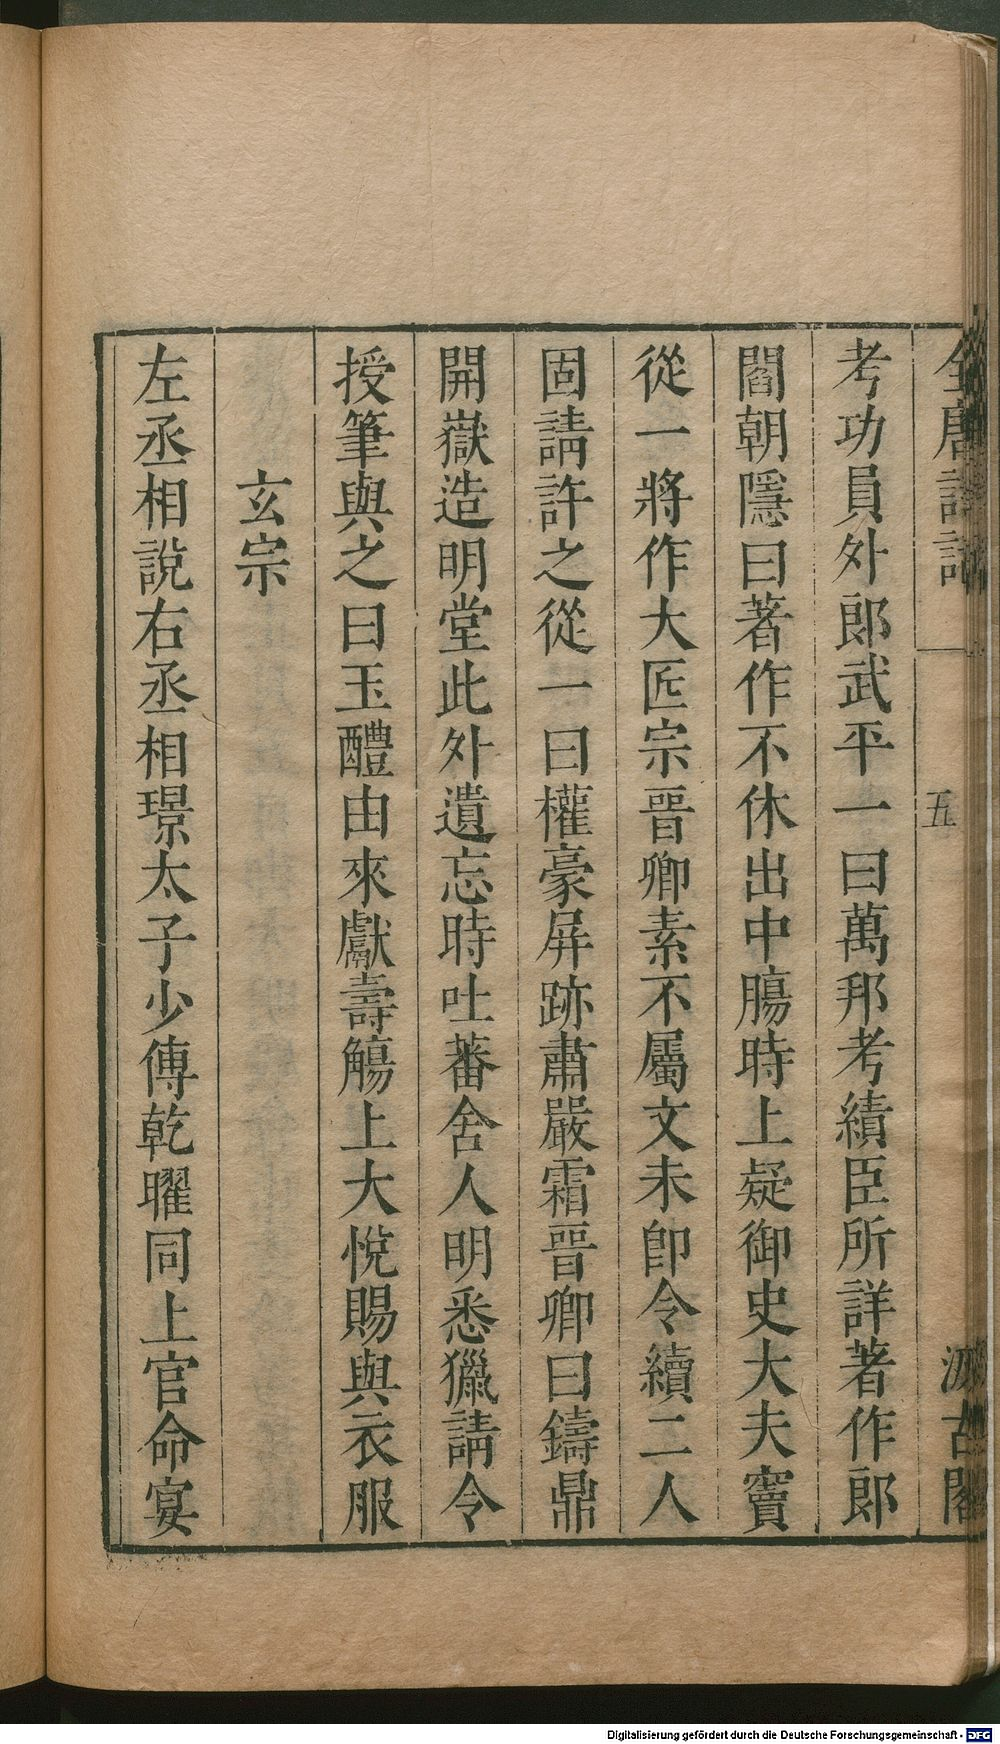 全唐詩話
五
汲古閣
考功員外郎武平一曰萬邦考績臣所詳著作郎
閻朝隱曰著作不休出中腸時上疑御史大夫竇
從一將作大匠宗晉卿素不屬文未卽令續二人
固請許之從一曰權豪屏跡肅嚴霜晉卿曰鑄鼎
開嶽造明堂此外遺忘時吐蕃舍人明悉獵請令
授筆與之曰玉醴由來獻壽觴上大悅賜與衣服
玄宗
左丞相說右丞相璟太子少傅乾曜同上官命宴
Digitalisierung gefördert durch die Deutsche Forschungsgemeinschaft - DFG